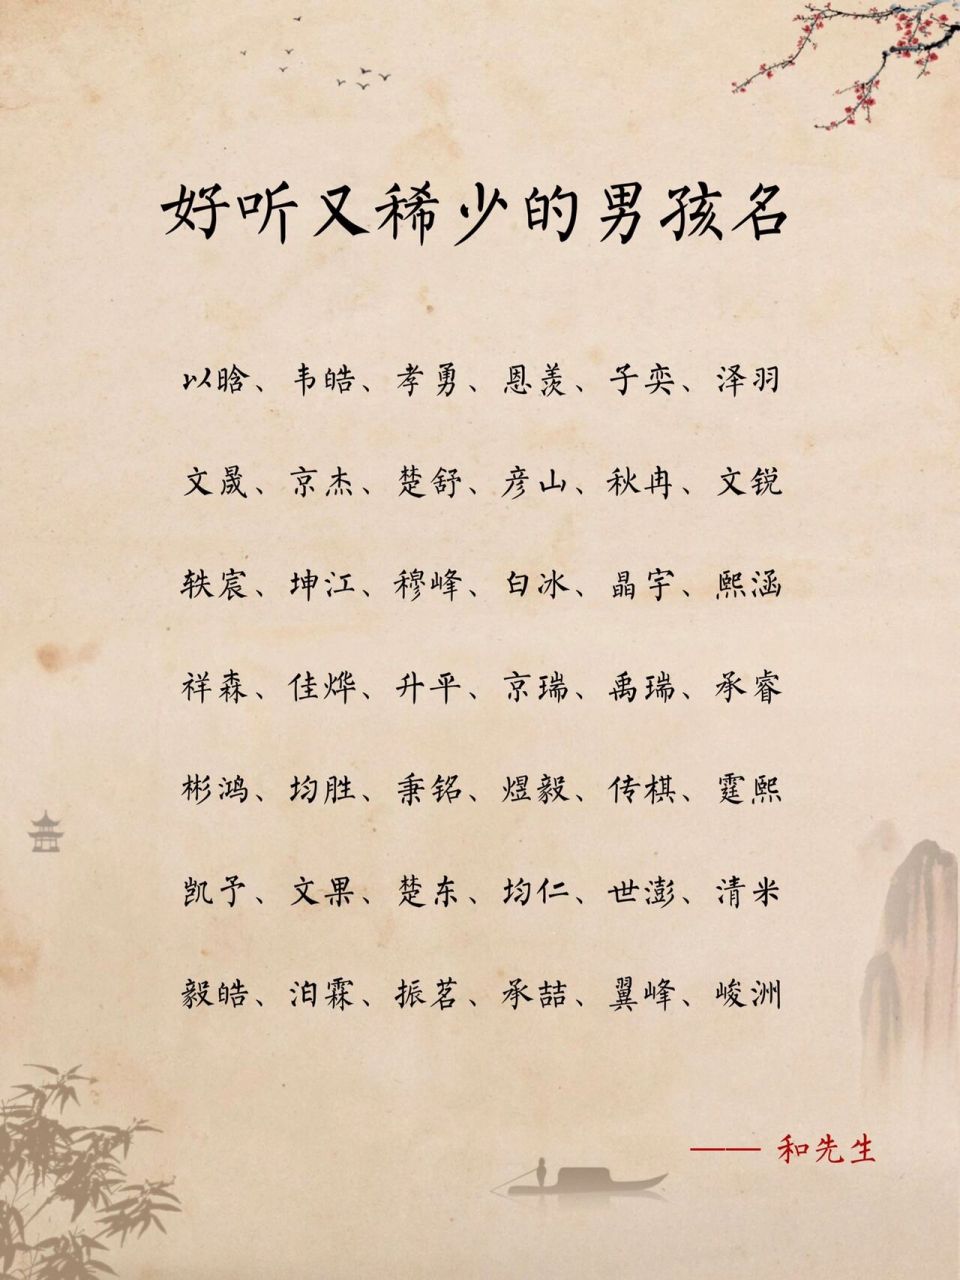 好听又稀少的男孩名
以晗、韦皓、孝勇、恩羡、子奕、泽羽
文晟、京杰、楚舒、彦山、秋冉、文锐
轶宸、坤江、穆峰、白冰、晶宇、熙涵
祥森、佳烨、升平、京瑞、禹瑞、承睿
彬鸿、均胜、秉铭、煜毅、传棋、霆熙
凯予、文果、楚东、均仁、世澎、清米
毅皓、泊霖、振茗、承喆、翼峰、峻洲
—— 和先生